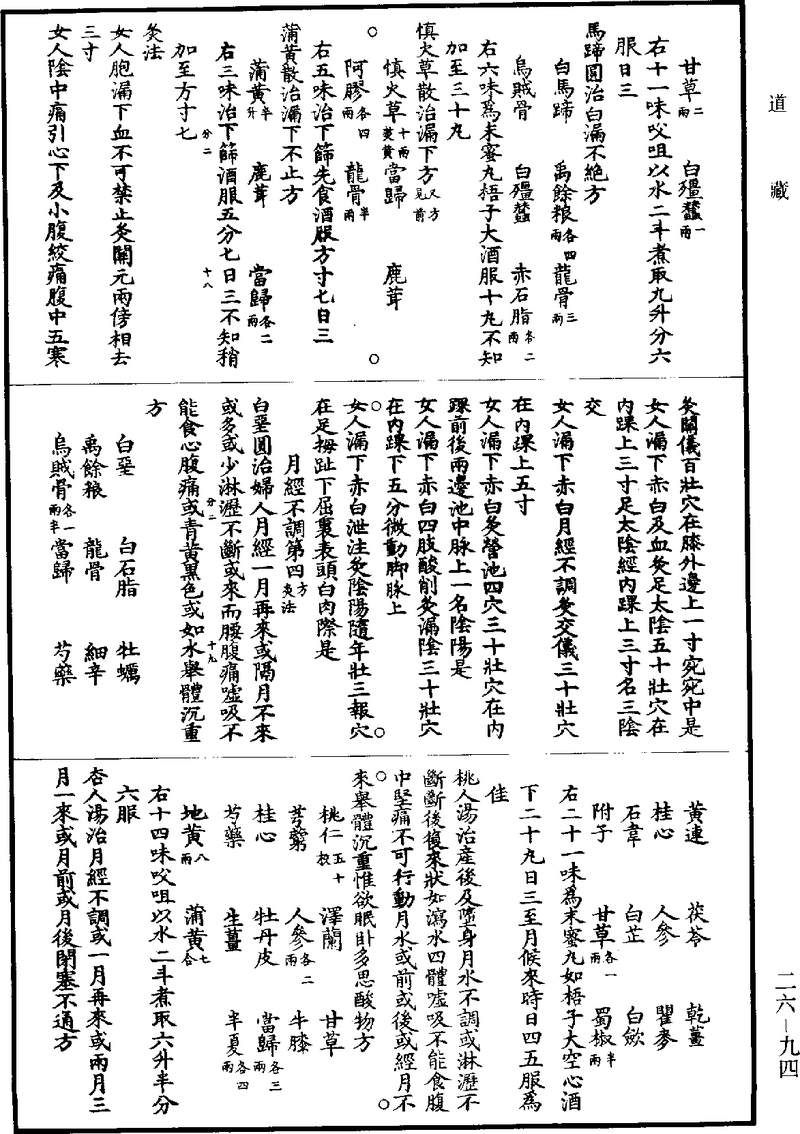 道藏
甘草二兩　白殭蠶一兩
右十一味㕮咀以水二斗煮取九升分六
服日三
馬蹄圓治白漏不絕方
白馬蹄　禹餘粮各四兩　龍骨三兩
烏賊骨　白殭蠶　赤石脂各二兩
右六味爲末蜜丸梧子大酒服十丸不知
加至三十丸
慎火草散治漏下方又方見前
慎火草十兩熬黃　當歸　鹿茸
阿膠各四兩　龍骨半兩
右五味治下篩先食酒服方寸匕日三
蒲黃散治漏下不止方
蒲黃半升　鹿茸　當歸各二兩
右三味治下篩酒服五分匕日三不知稍
加至方寸匕
分二　十八
灸法
女人胞漏下血不可禁止灸關元兩傍相去
三寸
女人陰中痛引心下及小腹絞痛腹中五寒
灸關儀百壯穴在膝外邊上一寸宛宛中是
女人漏下赤白及血灸足太陰五十壯穴在
内踝上三寸足太陰經内踝上三寸名三陰
交
女人漏下赤白月經不調灸交儀三十壯穴
在内踝上五寸
女人漏下赤白灸營池四穴三十壯穴在内
踝前後兩邊池中脉上一名陰陽是
女人漏下赤白四肢酸削灸漏陰三十壯穴
在内踝下五分微動脚脉上
女人漏下赤白泄注灸陰陽隨年壯三報穴
在足拇趾下屈裹表頭白肉際是
月經不調第四方灸法
白堊圓治婦人月經一月再來或隔月不來
或多或少淋瀝不斷或來而腰腹痛噓吸不
能食心腹痛或青黃黑色或如水舉體沉重
分二　十九
方
白堊　白石脂　牡蠣
禹餘粮　龍骨　細辛
烏賊骨各一兩半　當歸　芍藥
黃連　茯苓　乾薑
桂心　人參　瞿麥
石韋　白芷　白歛
附子　甘草各一兩　蜀椒半兩
右二十一味爲末蜜丸如梧子大空心酒
下二十丸日三至月候來時日四五服爲
佳
桃人湯治産後及墮身月水不調或淋瀝不
斷斷後復來狀如瀉水四體噓吸不能食腹
中堅痛不可行動月水或前或後或經月不
來舉體沉重惟欲眠卧多思酸物方
桃仁五十枚　澤蘭　甘草
芎藭　人參各二兩　牛膝
桂心　牡丹皮　當歸各三兩
芍藥　生薑　半夏各四兩
地黃八兩　蒲黃七合
右十四味㕮咀以水二斗煮取六升半分
六服
杏人湯治月經不調或一月再來或兩月三
月一來或月前或月後閉塞不通方
二六－九四